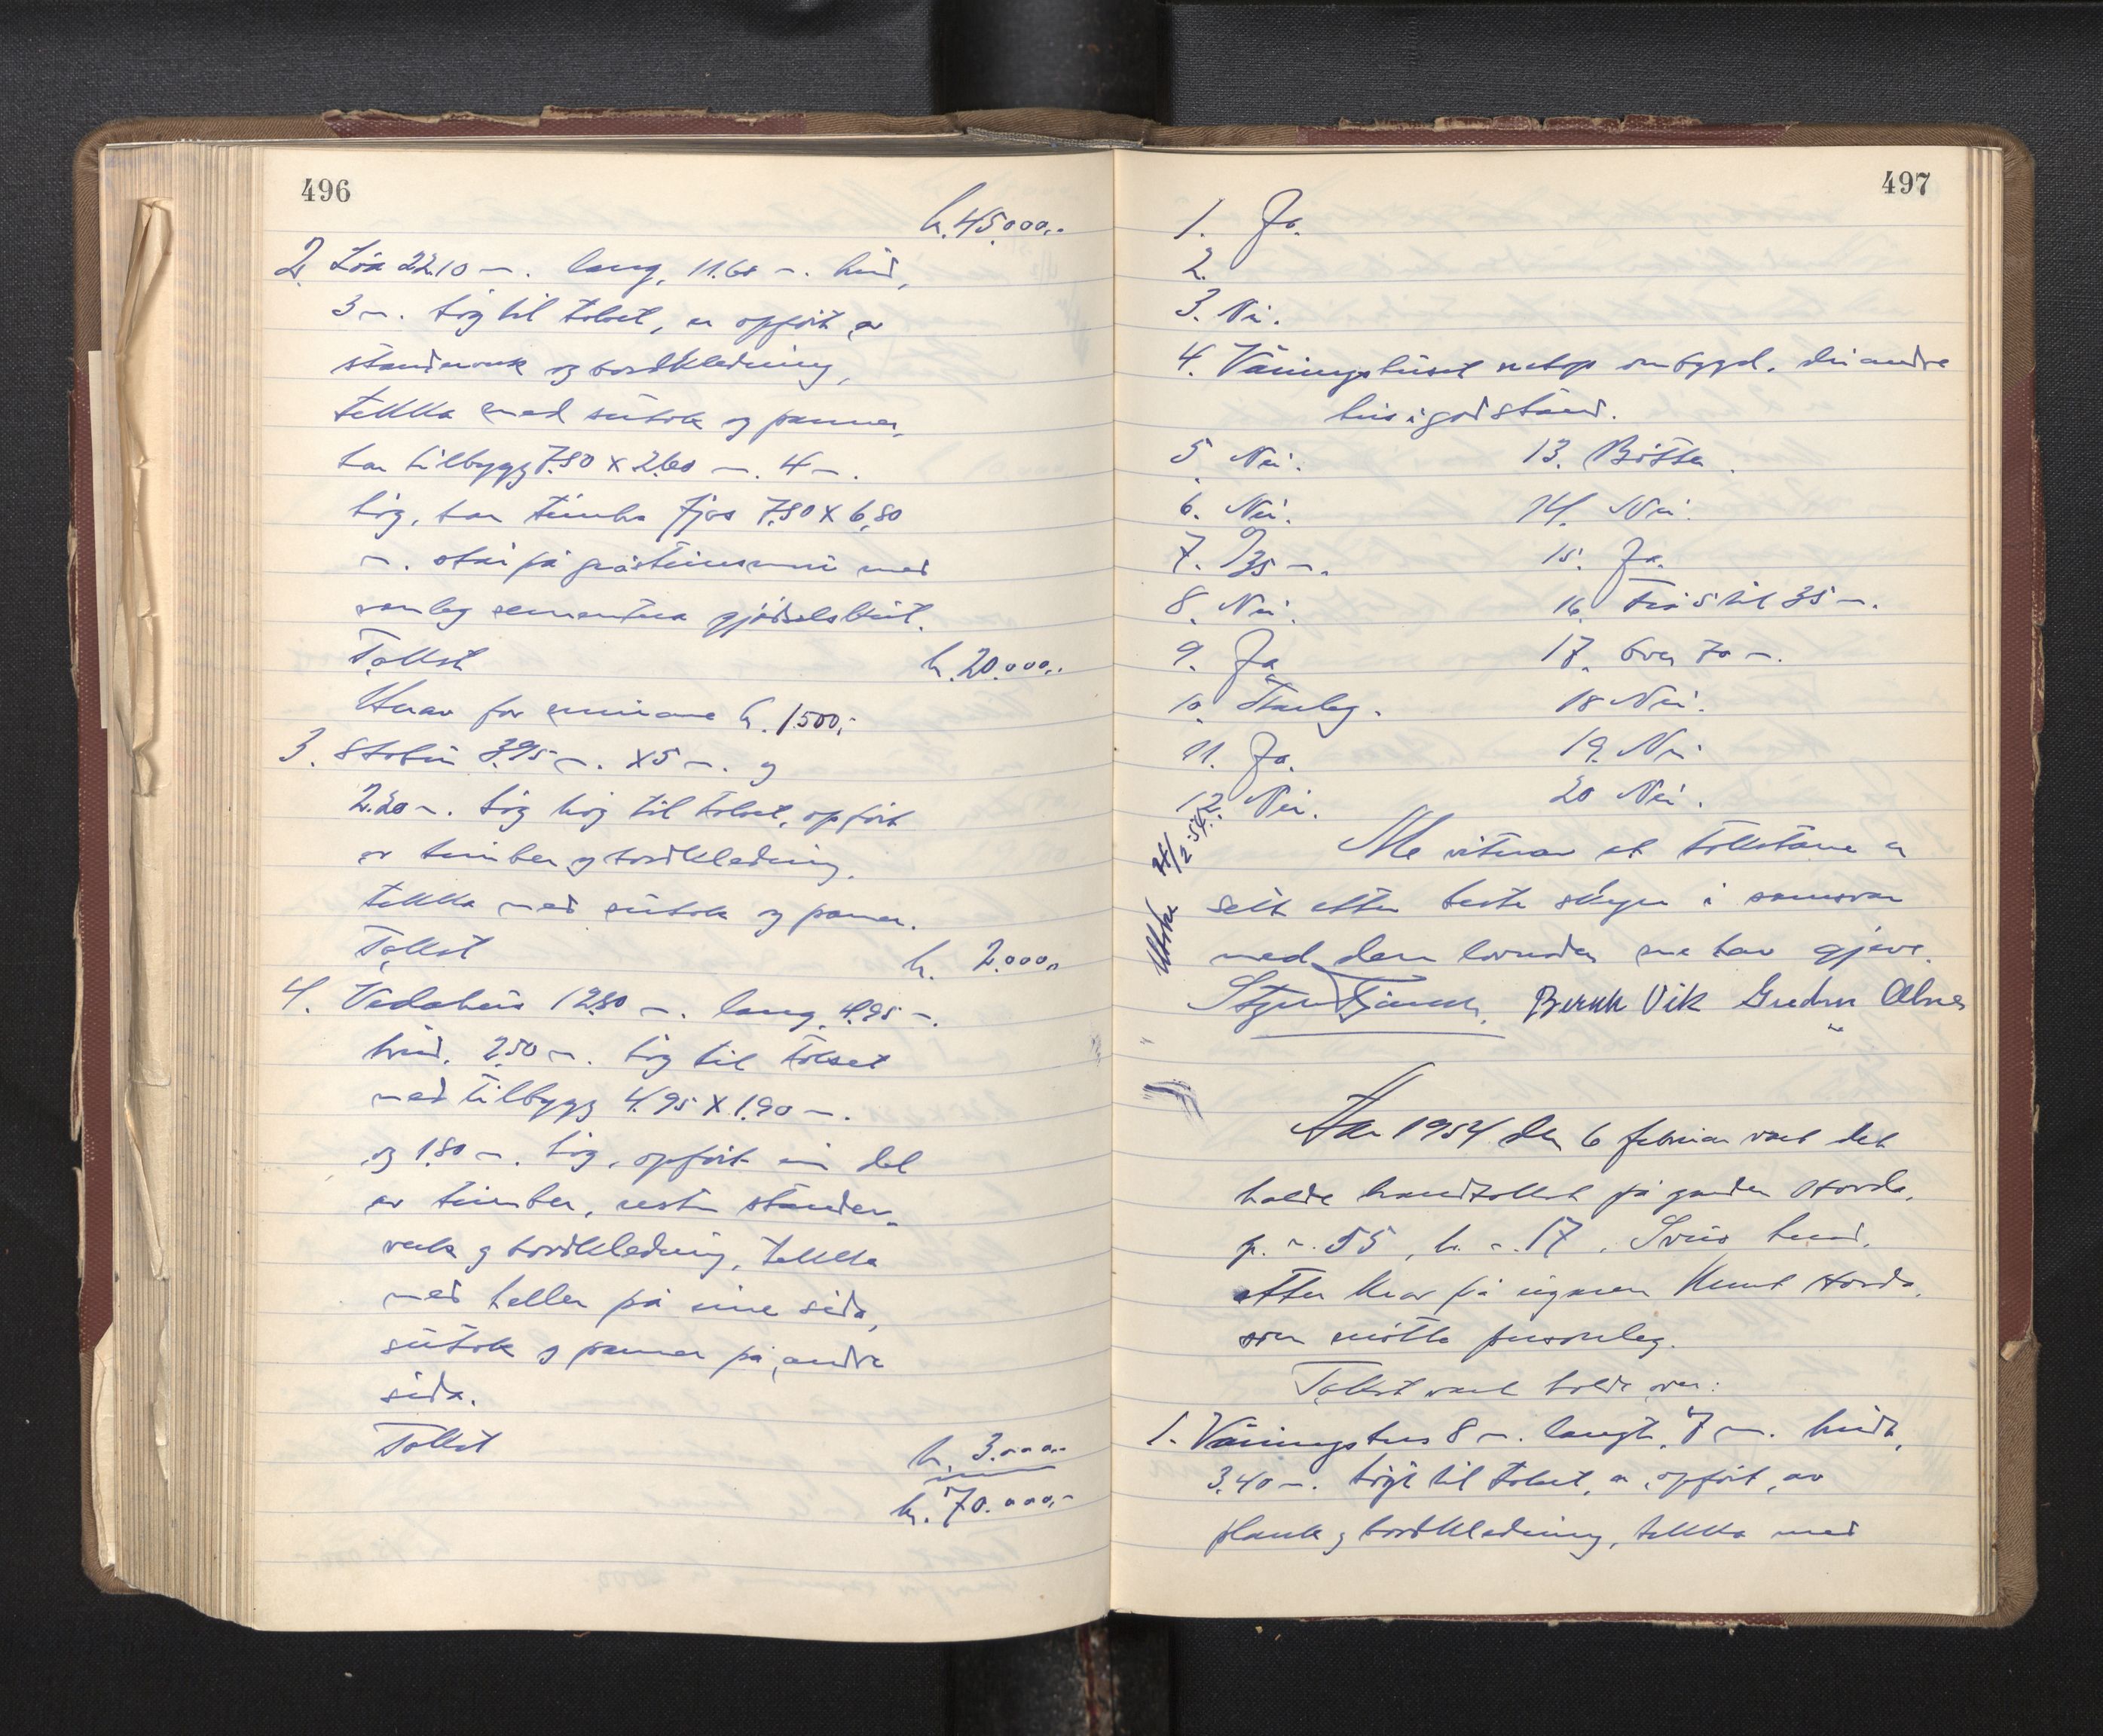 496
kr. 45.000,-
2. Löa 22.10 m. lang, 11.60 m. breid,
3 m. høg til röstet, er oppført av
standerverk og bordkledning,
tekkta med sutak og panner,
har tilbygg 7.80 x 2.60 m. 4 m.
høg, har timbra fjøs 7.80 x 6.80
m. står på gråsteinsmur med
vanleg sementera gjødselskut.
Takst kr. 20.000,-
Herav for murane kr. 1500,-
3. Stobu 3.95 m. x 5 m. og
2.20 m. høg høg til röstet, oppført
av timber og bordkledning,
tekkta med sutak og panner.
Takst kr. 2.000,-
4. Vedahus 12.80 m. lang, 4.95 m.
breid, 2.50 m. høg til röstet
med tilbygg 4.95 x 1.90 m.
og 1.80 m. høg, oppført ein del
av timber, resten stander-
verk og bordkledning, tekkta
med heller på eine sida,
sutak og panner på andre
sida.
Takst kr. 3.000,-
kr. 70.000,-
497
1. Ja.
2.
3. Nei.
4. Våningshuset netop ombygd. dei andre
hus i god stand.
5. Nei.
6. Nei.
7. 35 m.
8. Nei.
9. Ja
10.
11. Ja.
12. Nei.
13. Bøtter.
14. Nei.
15. Ja.
16. Frå 5 til 35 m.
17. Over 70 m.
18 Nei.
19. Nei
20 Nei.
Me vitnar at takstane er
sett etter beste skyn i samsvar
med den lovnaden me har gjeve.
Bernh Vik Gudm
Aar 1954 den 6 februar vart det
halde brandtakst på garden Hovda,
g. nr. 55, br. nr. 17, Sveio herad,
etter krav frå eigaren Knut Hovda,
som møtte personleg.
Takst vart halde over:
1. Våningshus 8 m. langt, 7 m. breidt,
3.40 m. høgt til röstet, er oppført av
plank og bordkledning, tekkta med